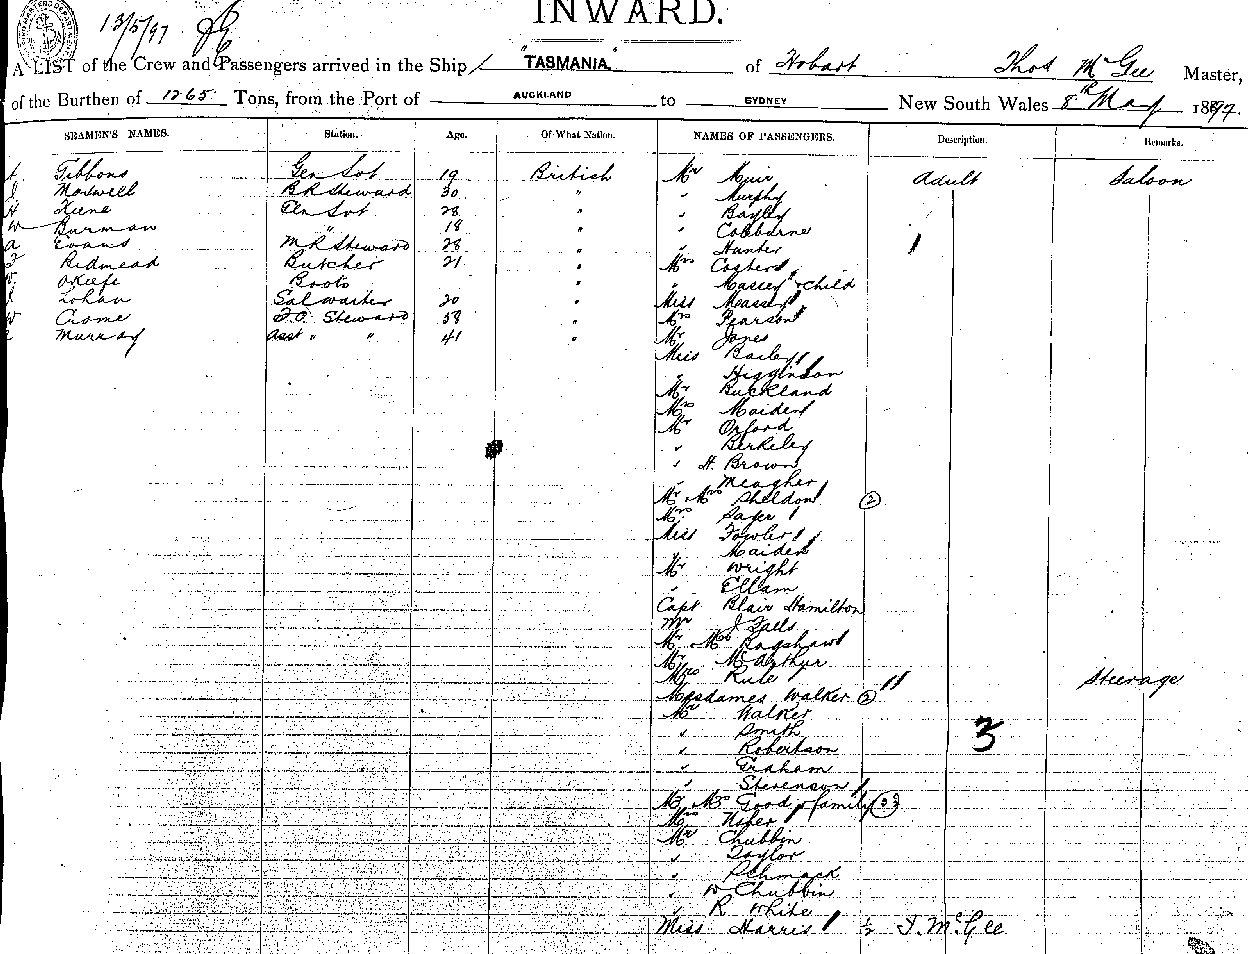 INWARD.
13/5/97
A LIST of the Crew and Passengers arrived in the Ship "TASMANIA." of Hobart Thos McGee Master,
of the Burthen of 1265 Tons, from the Port of AUCKLAND to SYDNEY New South Wales 8th May 1897.
SEAMEN'S NAMES. Station. Age. Of What Nation. NAMES OF PASSENGERS. Description. Remarks.
Gibbons Gen Svt 19 British Mr Muir Adult Saloon
Maxwell B.R Steward 30 " " Murphy
H Keene Gen Svt 28 " " Bayley
W Burman " 18 " " Colborne
A Evans M R Steward 28 " " Hunter
Redmead Butcher 21 " Mrs Costers
OKeefe Boots " " Massey & child
Lohan Sal waiter 20 " Miss Massey
W Crome F.C. Steward 58 " Mrs Pearson
Murray Asst " " 41 " Mr Jones
Miss Bailey
" Higginson
Mr Buckland
Mrs Maiden
Mr Orford
" Berkeley
" H. Brown
" Meagher
Mr Mrs Sheldon 2
Mrs Sager
Miss Fowler
" Maiden
Mr Wright
" Ellam
Capt Blair Hamilton
Mr J Zalls
Mr Mrs Bagshaw
Mr McArthur
Mrs Rule Steerage
Mesdames Walker 2
Mr Walker
" Smith 3
" Robertson
" Graham
" Stevenson
Mr Mrs Good & family
Mrs Naper
Mr Chubbin
" Taylor
" Pchmack
" W Chubbin
" R White
Miss Harris T. McGee